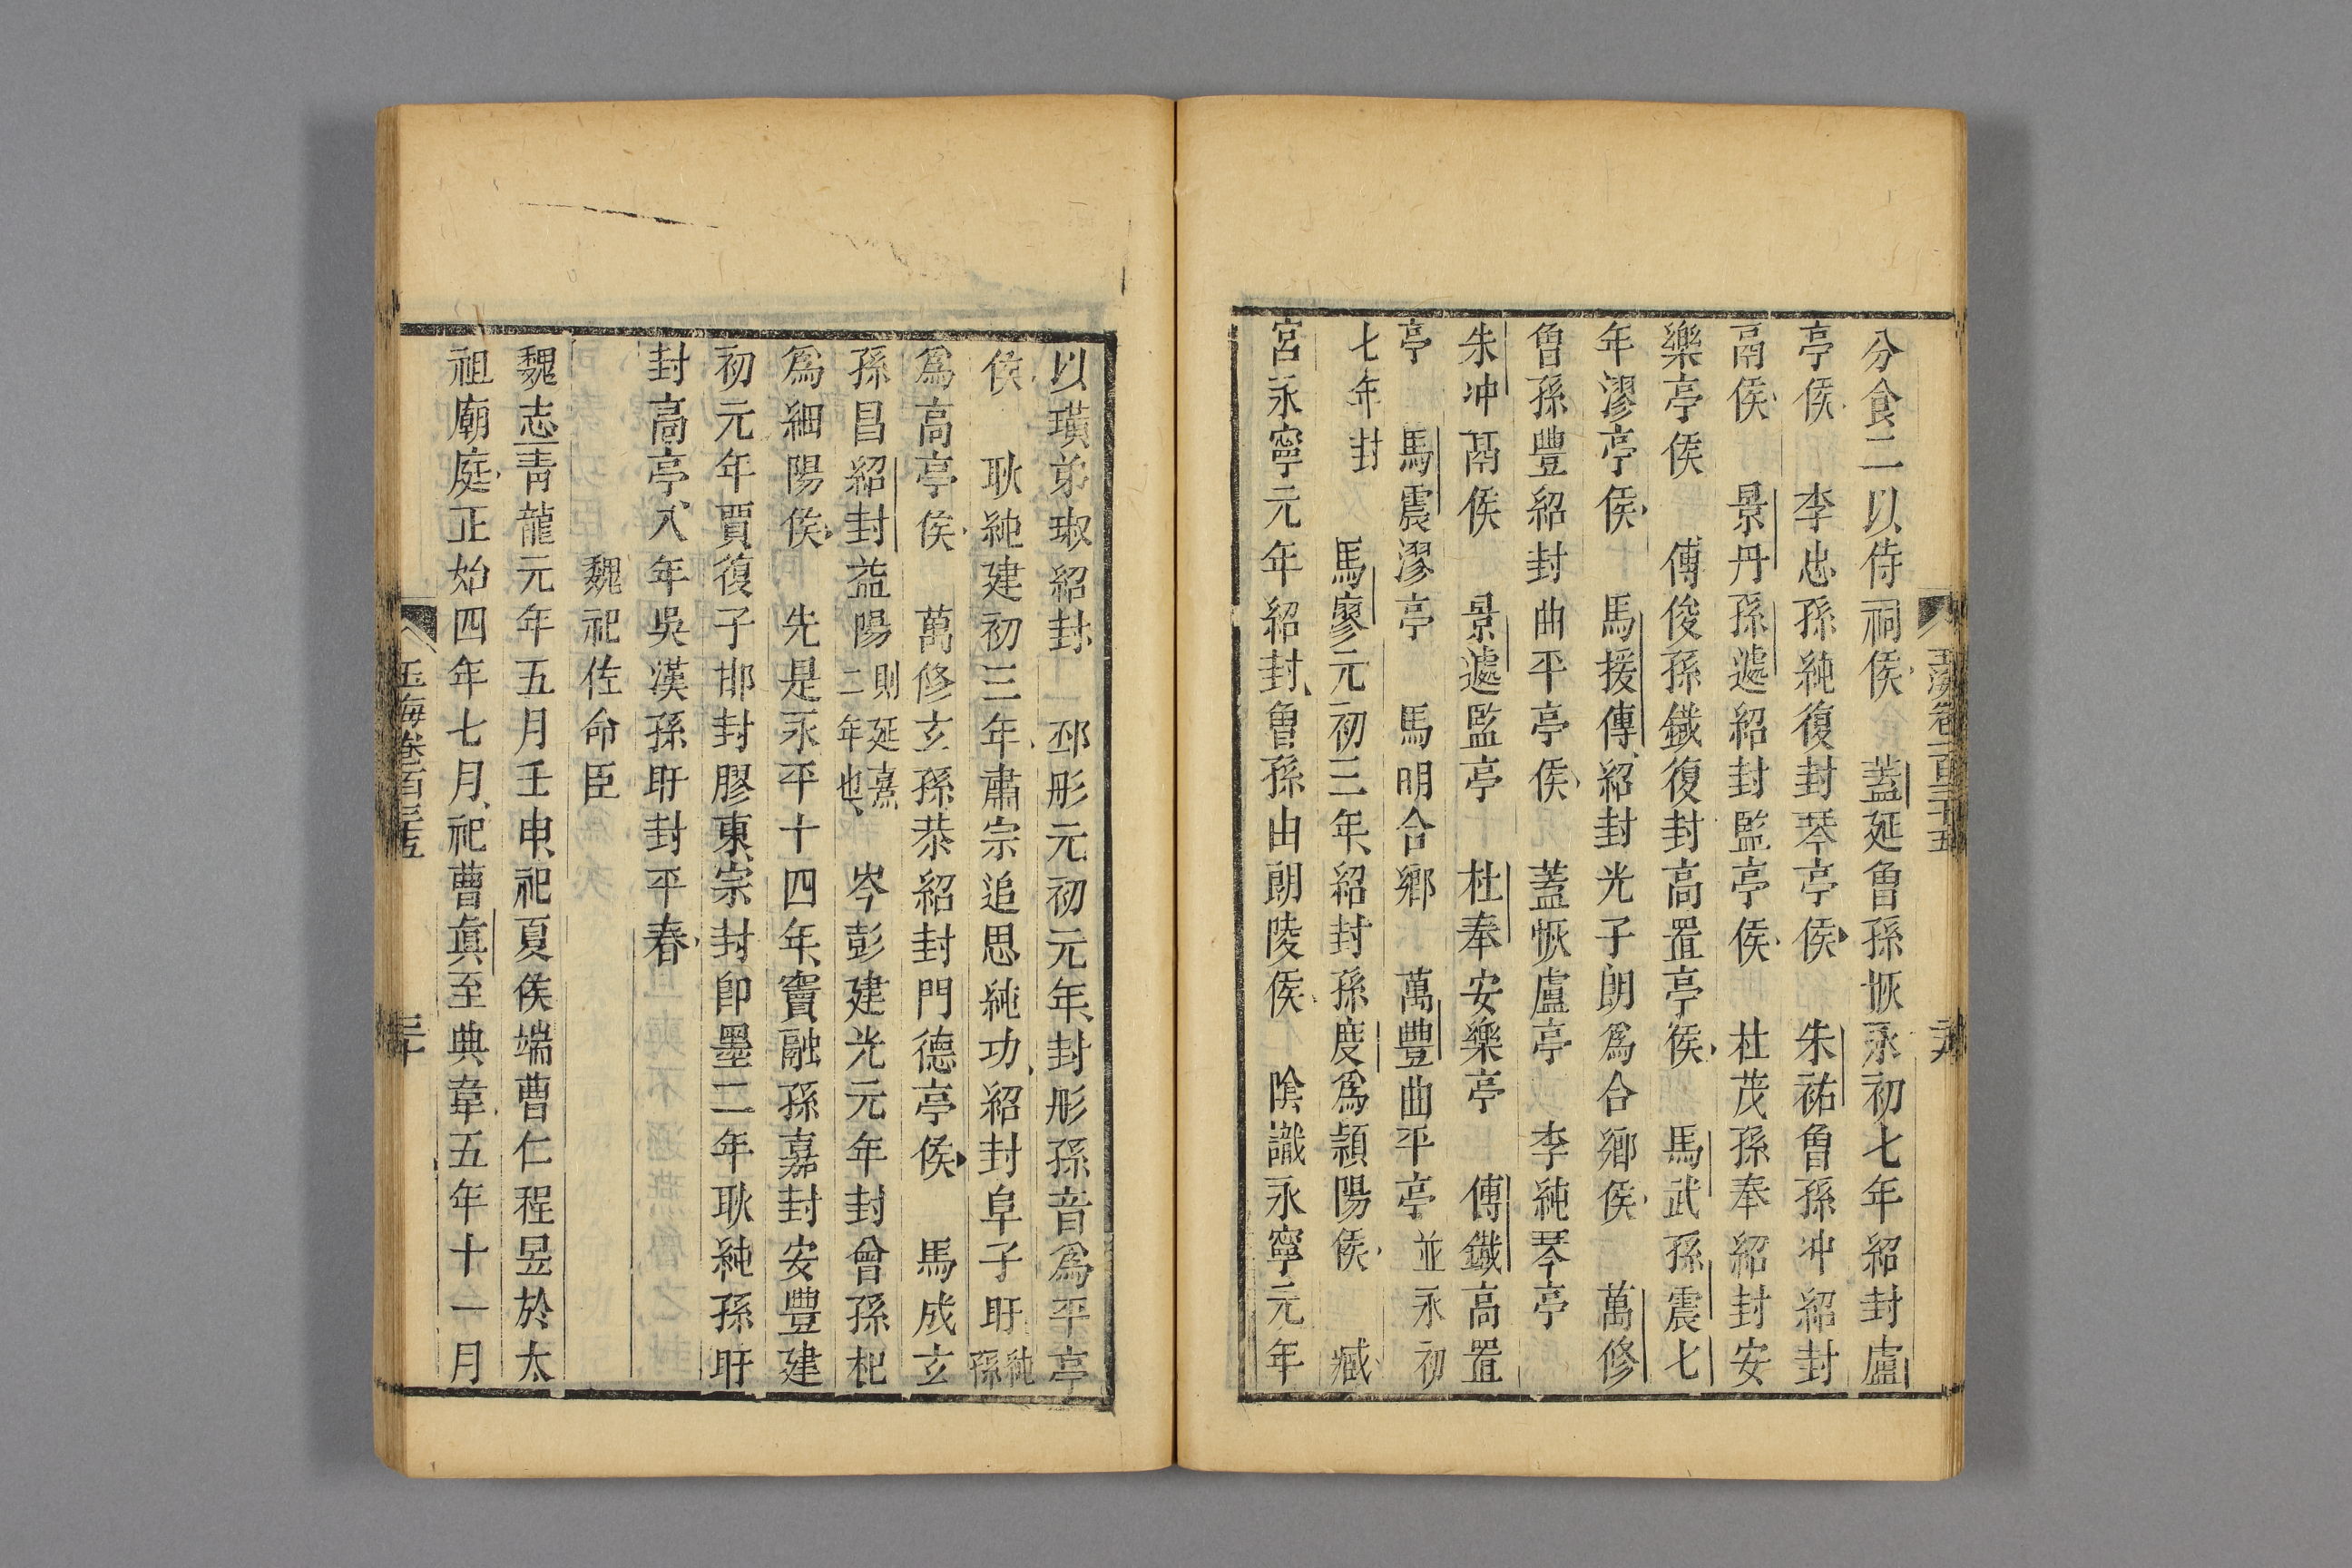 玉海卷一百三十五
分食二以侍祠侯　蓋延魯孫恢永初七年紹封盧
亭侯　李忠孫純復封琴亭侯　朱祐魯孫冲紹封
鬲侯　景丹孫遽紹封監亭侯　杜茂孫奉紹封安
樂亭侯　傅俊孫鐵復封高置亭侯　馬武孫震七
年漻亭侯　馬援傳紹封光子朗爲合鄉侯　萬修
魯孫豐紹封曲平亭侯　蓋恢盧亭　李純琴亭
朱冲鬲侯　景遽監亭　杜奉安樂亭　傅鐵高置
亭　馬震漻亭　馬明合鄉　萬豐曲平亭並永初
七年封　馬廖元初三年紹封孫度爲潁陽侯　臧
宮永寧元年紹封魯孫由朗陵侯　陰識永寧元年
以璜弟琡紹封　邳彤元初元年封彤孫音爲平亭
侯　耿純建初三年肅宗追思純功紹封阜子盱純孫
爲高亭侯　萬修玄孫恭紹封門德亭侯　馬成玄
孫昌紹封益陽則延熹二年也　岑彭建光元年封曾孫杞
爲細陽侯　先是永平十四年竇融孫嘉封安豐建
初元年賈復子邯封膠東宗封卽墨二年耿純孫盱
封高亭八年吳漢孫盱封平春
魏祀佐命臣
魏志青龍元年五月壬申祀夏侯端曹仁程昱於太
祖廟庭正始四年七月祀曹眞至典韋五年十一月
玉海卷一百三十五
三十